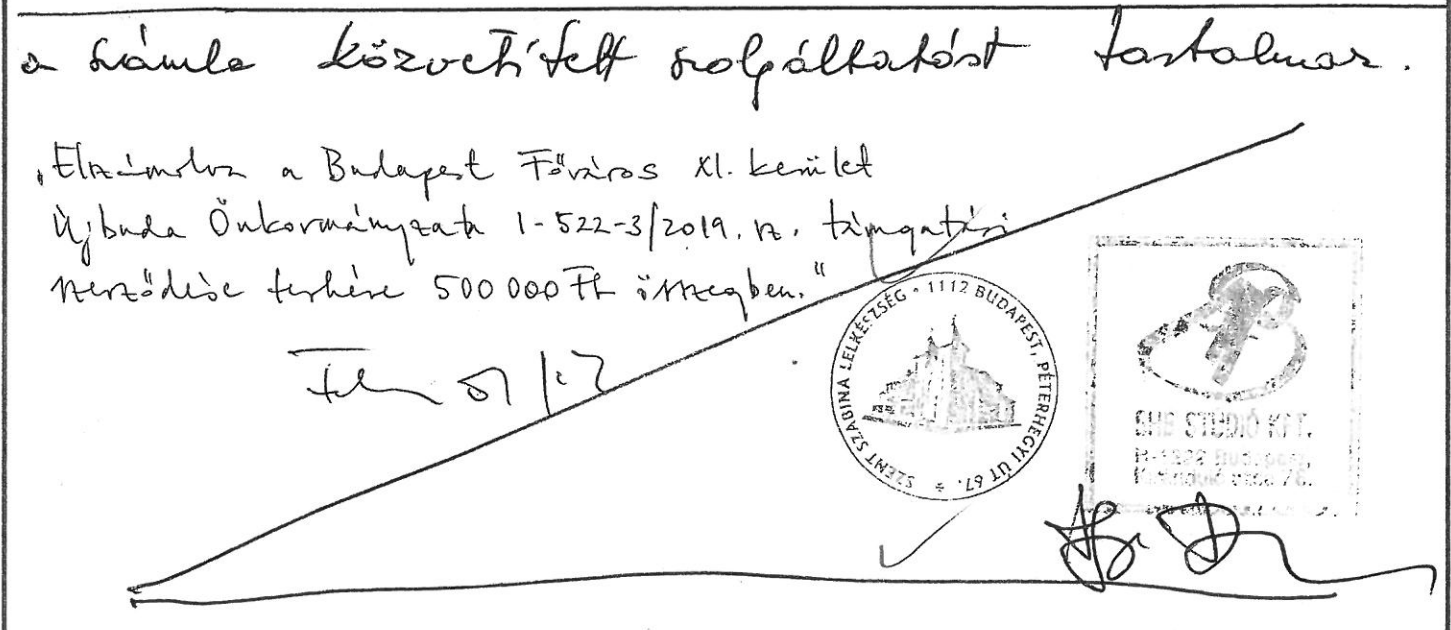 a számla közvetített szolgáltatást tartalmaz.
„Elszámolva a Budapest Főváros XI. kerület
Újbuda Önkormányzata 1-522-3/2019. sz. támogatási
szerződése terhére 500 000 Ft összegben."
SZENT SZABINA LELKÉSZSÉG • 1112 BUDAPEST, PÉTERHEGYI ÚT 67.
STUDIÓ KFT.